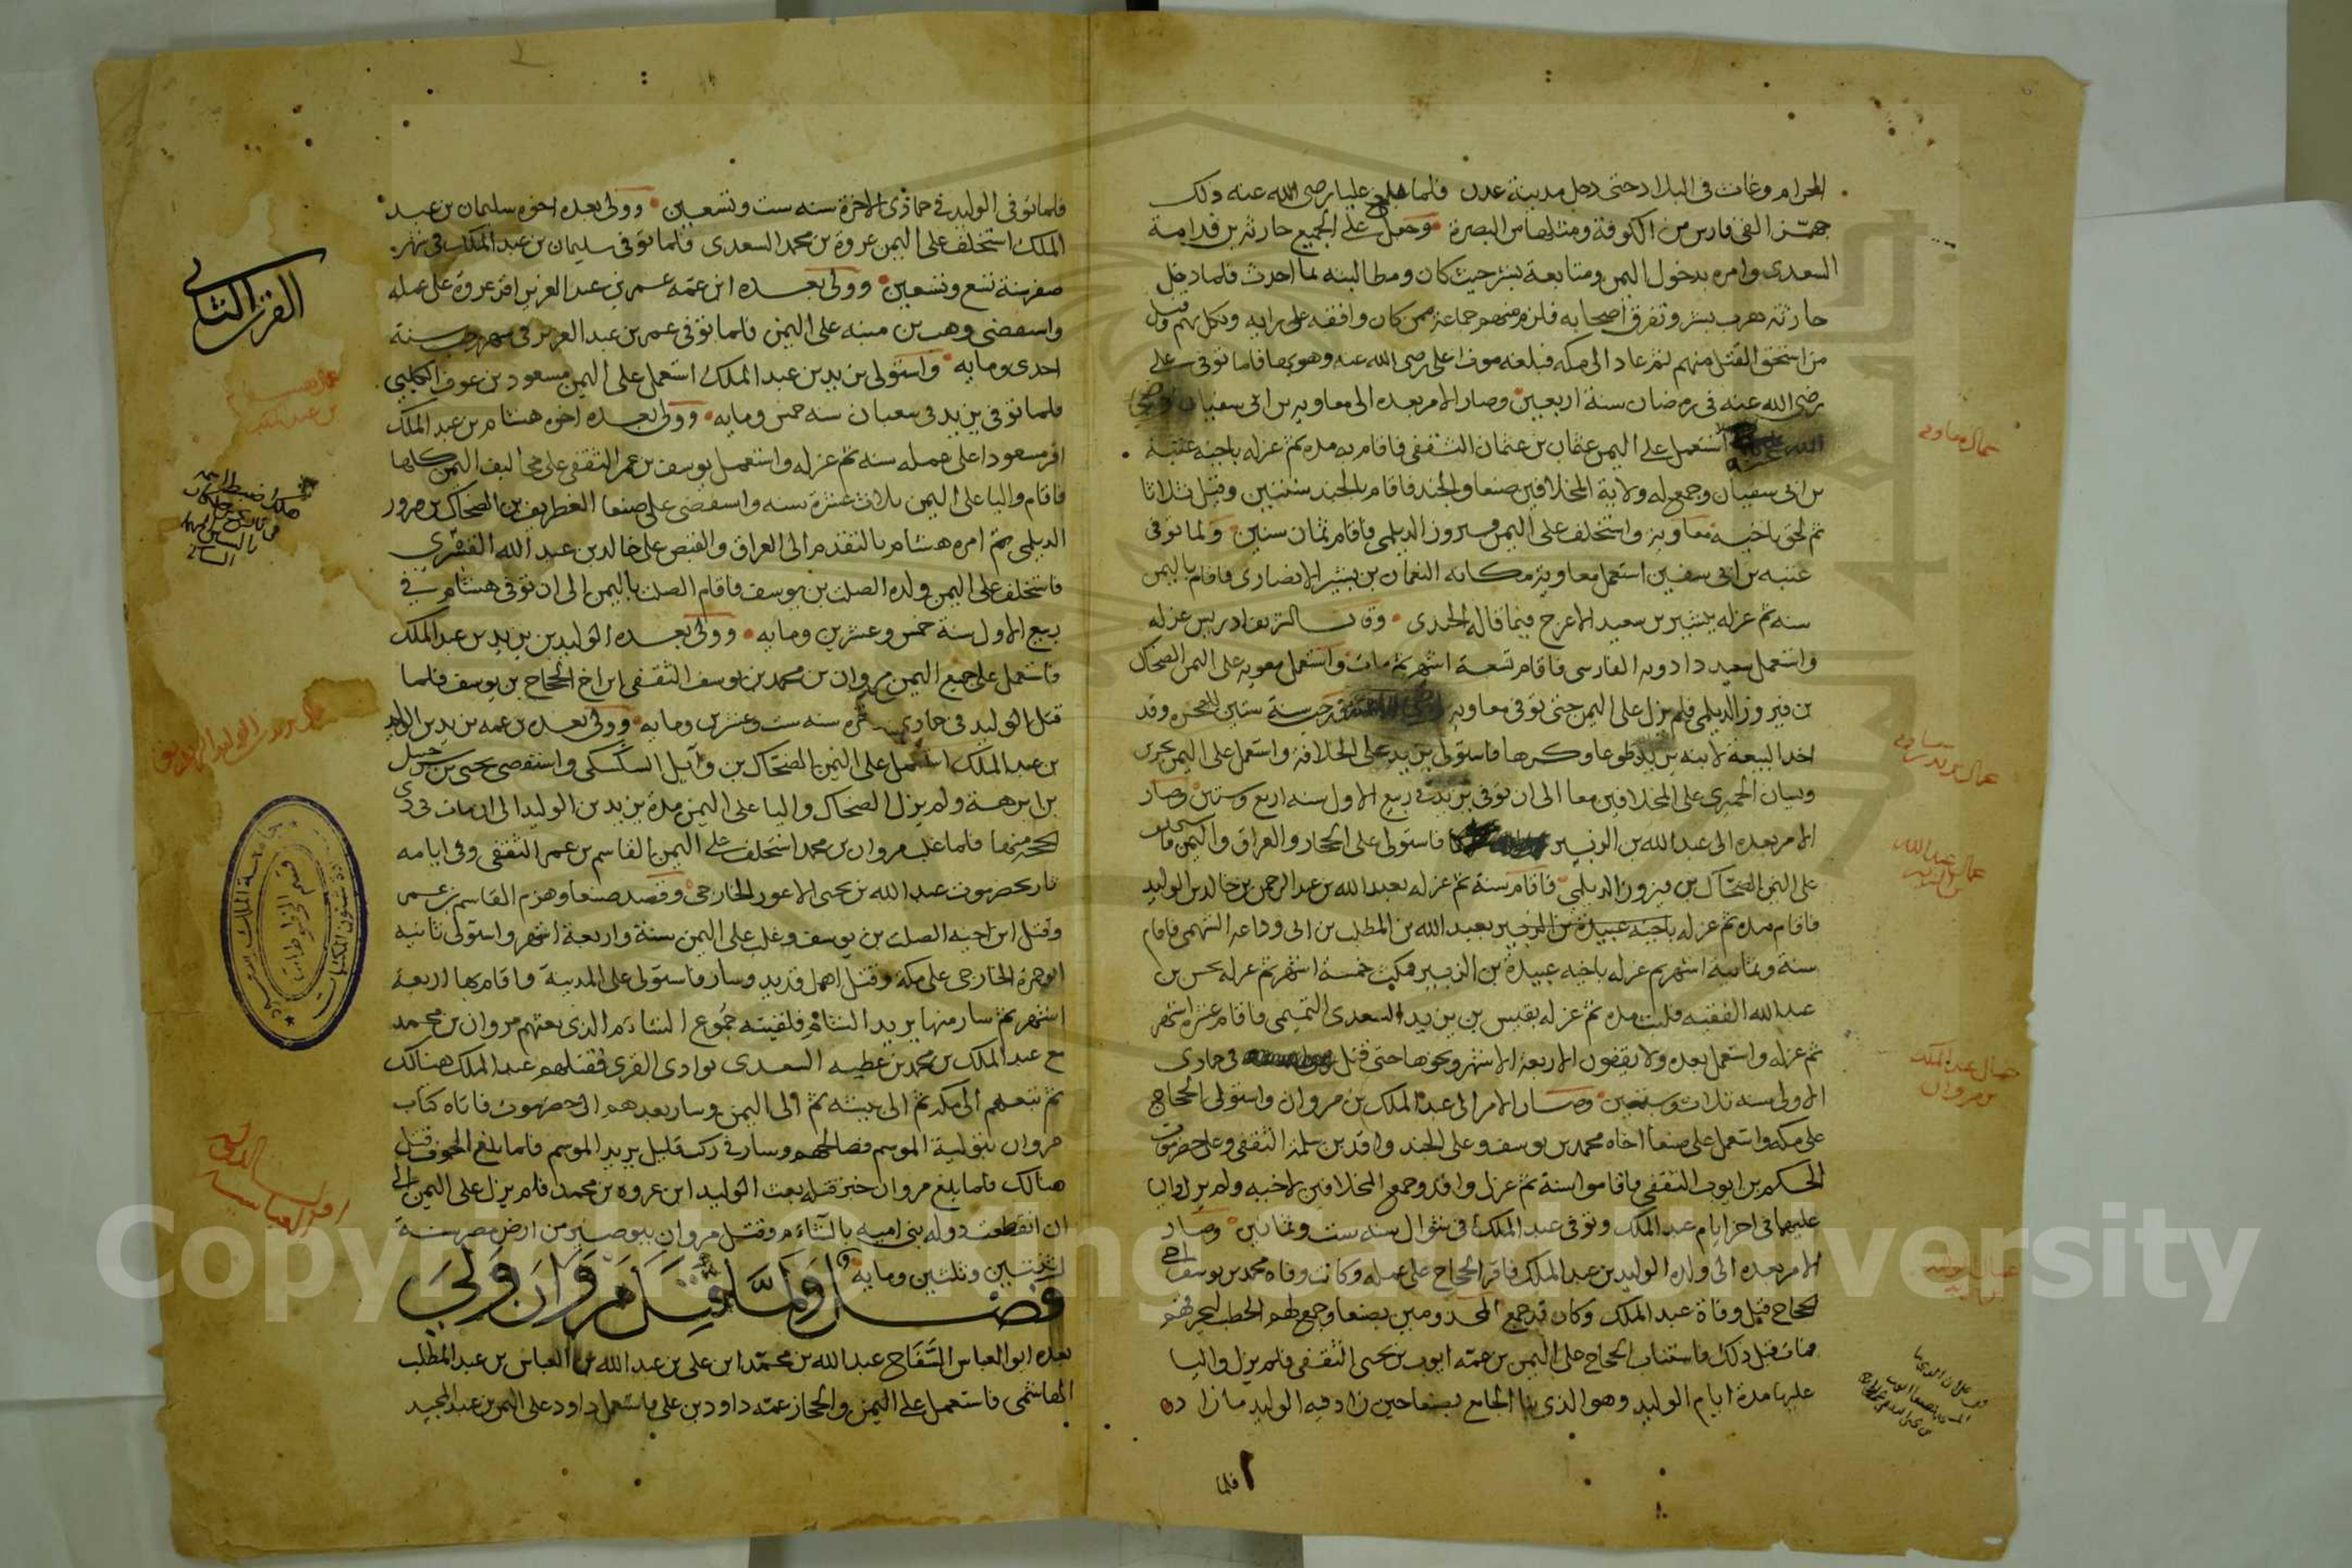 الحرام وعاث فى البلاد حتى دخل مدينة عدن فلما علم عليا رضى الله عنه ذلك
جهّز الفى فارس من الكوفة ومثلها من البصرة وجعل على الجميع حارثه بن قدامة
السعدى وامره بدخول اليمن ومتابعة بسر حيث كان ومطالبته بما احدث فلما دخل
حارثه هرب بسر وتفرق اصحابه فلزم منهم جماعة ممن كان وافقه على رايه ونكل بهم وقتل
من استحق القتل منهم ثم عاد الى مكه فبلغه موت على رضى الله عنه وهو بها فلما توفى على
رضى الله عنه فى رمضان سنة اربعين وصار الامر بعده الى معاويه بن ابى سفيان
استعمل على اليمن عثمان بن عثمان الثقفى فاقام به مده ثم عزله باخيه عتبة
بن ابى سفيان وجمع له ولاية المخلافين صنعا والجند فاقام بالجند سنتين وقيل ثلاثا
ثم لحق باخيه معاويه واستخلف على اليمن فيروز الديلمى فاقام ثمان سنين ولما توفى
عتبه بن ابى سفين استعمل معاوية مكانه النعمان بن بشير الانصارى فاقام باليمن
سنه ثم عزله ببشير بن سعيد الاعرج فيما قاله الجندى وقال الشريف ادريس عزله
واستعمل سعيد دادويه الفارسى فاقام تسعة اشهر ثم مات واستعمل معويه على اليمن الضحاك
بن فيروز الديلمى فلم يزل على اليمن حتى توفى معاويه رجب سنة ستين للهجره وقد
اخذ البيعة لابنه يزيد طوعا وكرها فاستولى يزيد على الخلافة واستعمل على اليمن بحرى
وبسان الحميرى على المخلافين معا الى ان توفى يزيد فى ربيع الاول سنه اربع وستين وصار
الامر بعده الى عبد الله بن الزبير فاستولى على الحجاز والعراق واليمن فاستخلف
على اليمن الضحاك بن فيروز الديلمى فاقام سنة ثم عزله بعبد الله بن عبد الرحمن بن خالد بن الوليد
فاقام مده ثم عزله باخيه عبيدة بن الزبير بعبد الله بن المطلب بن ابى وداعه السهمى فاقام
سنة وثمانية اشهر ثم عزله باخيه عبيدة بن الزبير فمكث خمسة اشهر ثم عزله بحسن بن
عبد الله الفقيه فلبث مده ثم عزله بقيس بن يزيد السعدى التميمى فاقام عشرة اشهر
ثم عزله واستعمل بعده ولا يقيمون الا اربعة الاشهر ونحوها حتى قتل فى جمادى
الاولى سنه ثلاث وسبعين وصار الامر الى عبد الملك بن مروان واستولى الحجاج
على مكه واستعمل على صنعا اخاه محمد بن يوسف وعلى الجند واقد بن سلمة الثقفى وعلى حضرموت
الحكم بن ايوب الثقفى فاقاموا سنة ثم عزل واقد وجمع المخلافين لاخيه ولم يزل واليا
عليها فى اخر ايام عبد الملك وتوفى عبد الملك فى شوال سنه ست وثمانين وصار
الامر بعده الى ولده الوليد بن عبد الملك فاقر الحجاج على عمله وكانت وفاه محمد بن يوسف اخى
الحجاج قبل وفاة عبد الملك وكان قد جمع المجذومين بصنعا وجمع لهم الحطب ليحرقهم
فمات قبل ذلك واستناب الحجاج على اليمن بن عمه ايوب بن يحيى الثقفى فلم يزل واليا
عليها مدة ايام الوليد وهو الذى بنا الجامع بصنعا حين زاد فيه الوليد ما زاد
فلما
عمال معاويه
عمال يزيد بن معاويه
عمال عبد الله بن الزبير
عمال عبد الملك بن مروان
فلما توفى الوليد فى جمادى الاخرة سنه ست وتسعين وولى بعده اخوه سليمان بن عبد
الملك استخلف على اليمن عروة بن محمد السعدى فلما توفى سليمان بن عبد الملك فى شهر
صفر سنة تسع وتسعين وولى بعده ابن عمه عمر بن عبد العزيز اقر عروة على عمله
واستقضى وهب بن منبه على اليمن فلما توفى عمر بن عبد العزيز فى شهر رجب سنة
احدى ومايه واستولى يزيد بن عبد الملك استعمل على اليمن مسعود بن عوف الكلبى
فلما توفى يزيد فى شعبان سنه خمس ومايه وولى بعده اخوه هشام بن عبد الملك
اقر مسعودا على عمله سنه ثم عزله واستعمل يوسف بن عمر الثقفى على مخاليف اليمن كلها
فاقام واليا على اليمن ثلاث عشرة سنه واستقضى على صنعا الغطريف بن الضحاك بن فيروز
الديلمى ثم امره هشام بالتقدم الى العراق والقبض على خالد بن عبد الله القسرى
فاستخلف على اليمن ولده الصلت بن يوسف فاقام الصلت باليمن الى ان توفى هشام فى
ربيع الاول سنة خمس وعشرين ومايه وولى بعده الوليد بن يزيد بن عبد الملك
فاستعمل على جميع اليمن مروان بن محمد بن يوسف الثقفى ابن اخ الحجاج بن يوسف فلما
قتل الوليد فى جمادى الاخره سنه ست وعشرين ومايه وولى بعده بن عمه يزيد بن الوليد
بن عبد الملك استعمل على اليمن الضحاك بن وآيل السكسكى واستقضى يحيى بن شرحبيل
بن ابرهة ولم يزل الضحاك واليا على اليمن مدة يزيد بن الوليد الى ان مات فى ذى
الحجة منها فلما غلب مروان بن محمد استخلف على اليمن القاسم بن عمر الثقفى وفى ايامه
ثار بحضرموت عبد الله بن يحيى الاعور الخارجى وقصد صنعا وهزم القاسم بن عمر
وقتل ابن اخيه الصلت بن يوسف وغلب على اليمن سنة واربعة اشهر واستولى نائبه
ابو حمزة الخارجى على مكة وقتل اهل قديد وسار فاستولى على المدينة واقام بها اربعة
اشهر ثم سار منها يريد الشام فلقيته جموع الشام الذى بعثهم مروان بن محمد
مع عبد الملك بن محمد بن عطيه السعدى بوادى القرى فقتلهم عبد الملك هنالك
ثم تبعهم الى مكه ثم الى بيشه ثم الى اليمن وسار بعدهم الى حضرموت فاتاه كتاب
مروان بتولية الموسم فصالحهم وسار فى ركب قليل يريد الموسم فلما بلغ الجوف قتل
هنالك فلما بلغ مروان خبر قتله بعث الوليد ابن عروه بن محمد فلم يزل على اليمن الى
ان انقطعت دوله بنى اميه بالشام وقتل مروان ببوصير من ارض مصر سنة
اثنتين وثلثين ومايه
فصل ولما قتل مروان وولى
بعده ابو العباس السفاح عبد الله بن محمد ابن على بن عبد الله بن العباس بن عبد المطلب
الهاشمى فاستعمل على اليمن والحجاز عمه داود بن على فاستعمل داود على اليمن بن عبد المجيد
القرن الثانى
اول الدولة العباسيه
جامعة الملك سعود
قسم المخطوطات
عمادة شئون المكتبات
Copyright © King Saud University